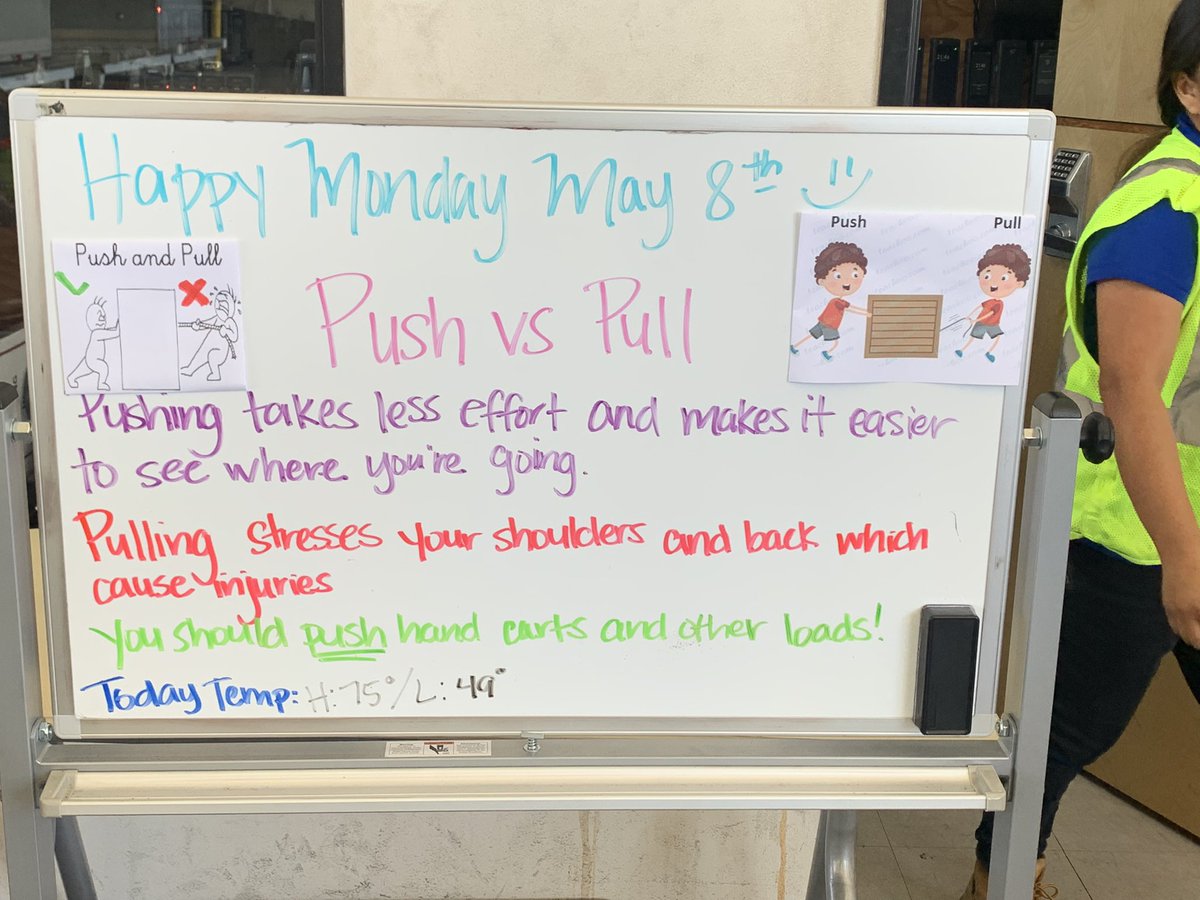 Happy Monday May 8th
Push and Pull
Push
Pull
Push vs Pull
Pushing takes less effort and makes it easier
to see where you're going.
Pulling stresses your shoulders and back which
cause injuries
You should push hand carts and other loads!
Today Temp: H: 75°/L: 49°